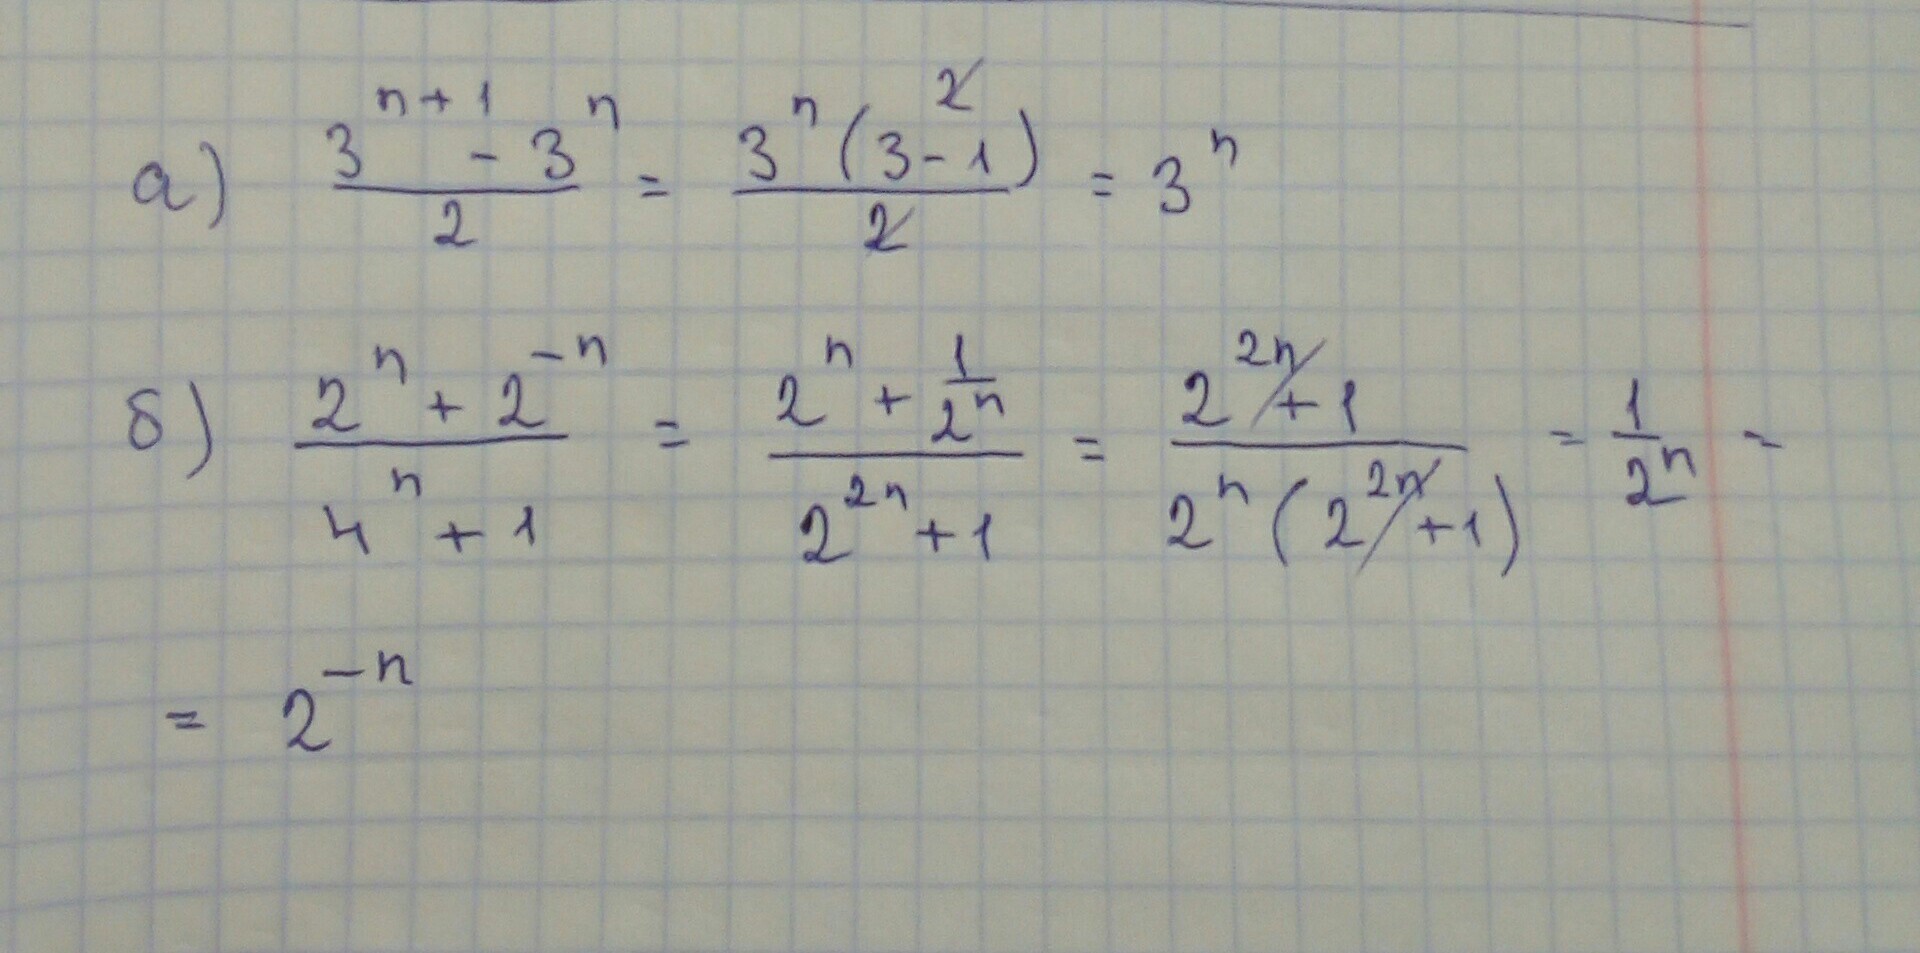 а) (3^(n+1) - 3^n)/2 = (3^n (3-1))/2 = 3^n
2
б) (2^n + 2^(-n))/(4^n + 1) = (2^n + 1/2^n)/(2^(2n) + 1) = (2^(2n) + 1)/(2^n (2^(2n) + 1)) = 1/2^n =
= 2^(-n)